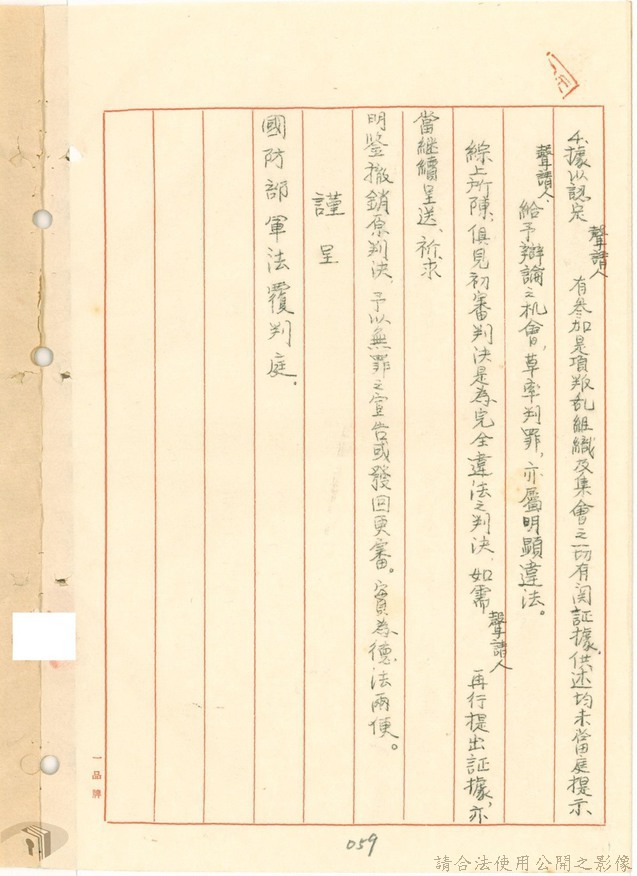 4.據以認定聲請人有參加是項叛乱組織及集會之一切有関証據、供述均未當庭提示
聲請人、給予辯論之机會，草率判罪，亦屬明顯違法。
綜上所陳，俱見初審判決是為完全違法之判決，如需聲請人再行提出証據，亦
當繼續呈送、祈求
明鉴撤銷原判決，予以無罪之宣告或發回更審。實為德法兩便。
謹呈
國防部軍法覆判庭。
一品牌
059
請合法使用公開之影像